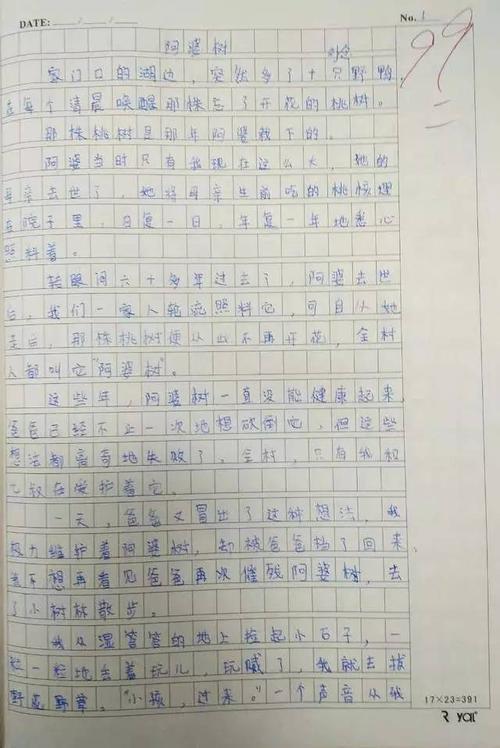 DATE: / /
No. 1
99
阿婆树
家门口的湖边，突然多了十只野鸭，
在每个清晨唤醒那株忘了开花的桃树。
那株桃树是那年阿婆栽下的。
阿婆当时只有我现在这么大，她的
母亲去世了，她将母亲生前吃的桃核埋
在院子里，日复一日，年复一年地悉心
照料着。
转眼间六十多年过去了，阿婆去世
后，我们一家人轮流照料它，可自从她
走后，那株桃树便从此不再开花，全村
人都叫它“阿婆树”。
这些年，阿婆树一直没能健康起来，
爸爸已经不止一次地想砍倒它，但这些
想法都离奇地失败了，全村，只有我和
七叔在爱护着它。
一天，爸爸又冒出了这种想法，我
极力维护着阿婆树，却被爸爸挡了回来，
我不想再看见爸爸再次催残阿婆树，去
了小树林散步。
我从湿答答的地上捡起小石子，一
粒一粒地丢着玩儿，玩腻了，我就去拔
野花野草。“小孩，过来。”一个声音从我
17×23=391